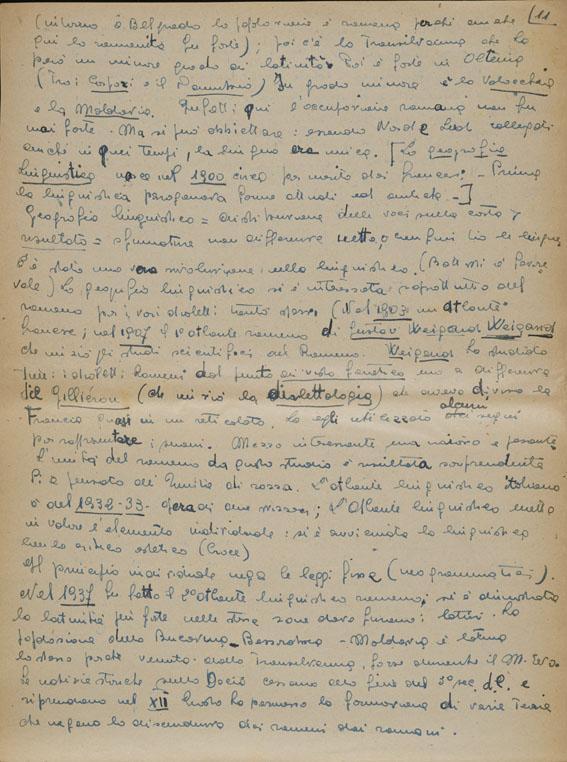 11
(intorno a Belgrado la popolazione è romena perché anche
qui la romanità fu forte); poi c'è la Transilvania che ha
però un minore grado di latinità. Poi è forte in Oltenia
(Troi Corpori e il Danubio). In grado minore è la Valacchia
e la Moldavia. Infatti qui l'occupazione romana non fu
mai forte. Ma si può obbiettare: essendo Nord e Sud collegati
anche in quei tempi, la lingua era unica. [La geografia
linguistica nasce nel 1900 circa per merito dei francesi. - Prima
la linguistica paragonava forme attuali ed antiche. -]
Geografia linguistica = distribuzione delle voci sulla carta;
risultato = sfumature non differenze nette, o confini tra le lingue
C'è stata una vera rivoluzione nella linguistica. (Battisti è favore
vole) La geografia linguistica si è interessata soprattutto del
romeno per i vari dialetti tanto sparsi. (Nel 1903 un atlante
francese; nel 1907 il 1º atlante romeno di Gustav Weigand Weigand
che iniziò gli studi scientifici sul Romeno. Weigand ha studiato
tutti i dialetti Romeni dal punto di vista fonetico ma a differenza
del Gillieron (che iniziò la dialettologia) che aveva diviso la
Francia quasi in un reticolato. Ha egli utilizzato alcuni segni
per raffrontare i suoni. Mezzo interessante ma noioso e pesante
L'unità del romeno da questo studio è risultata sorprendente
Si è pensato all'Unità di razza. L'atlante linguistico italiano
è del 1932-33 opera di due svizzeri; L'Atlante linguistico mette
in valore l'elemento individuale: si è avvicinata la linguistica
alla critica estetica (Croce)
Il principio individuale nega le leggi fisse (neogrammatici).
Nel 1937 fu fatto il 2º atlante linguistico romeno; si è dimostrata
la latinità più forte nelle stesse zone dove furono i latini. La
popolazione della Bucovina - Bessarabia - Moldavia è latina
lo stesso perché venuta dalla Transilvania, forse durante il M. Evo.
Le notizie storiche sulla Dacia cessano alla fine del 3º sec. d.C. e
riprendono nel XII Questo ha permesso la formazione di varie Teorie
che negano la discendenza dei romeni dai romani.